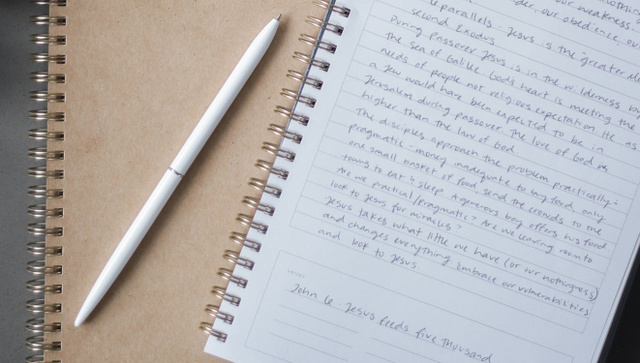 our weakness
parallels. Jesus is the greater
der, our obedience, our
second Exodus
During passover Jesus is in the wilderness by
the sea of Galilee God's heart is meeting the
needs of people not religious expectation. He as
a Jew would have been expected to be in
Jerusalem during passover. The love of God is
higher than the law of God
The disciples approach the problem practically:
pragmatic - money inadequate to buy food, only
one small basket of food, send the crowds to the
towns to eat & sleep. A generous boy offers his food
Are we practical/pragmatic? Are we leaving room to
look to Jesus for miracles?
Jesus takes what little we have (or our nothingness)
and changes everything embrace our vulnerabilities
and look to Jesus
John 6 - Jesus feeds five thousand